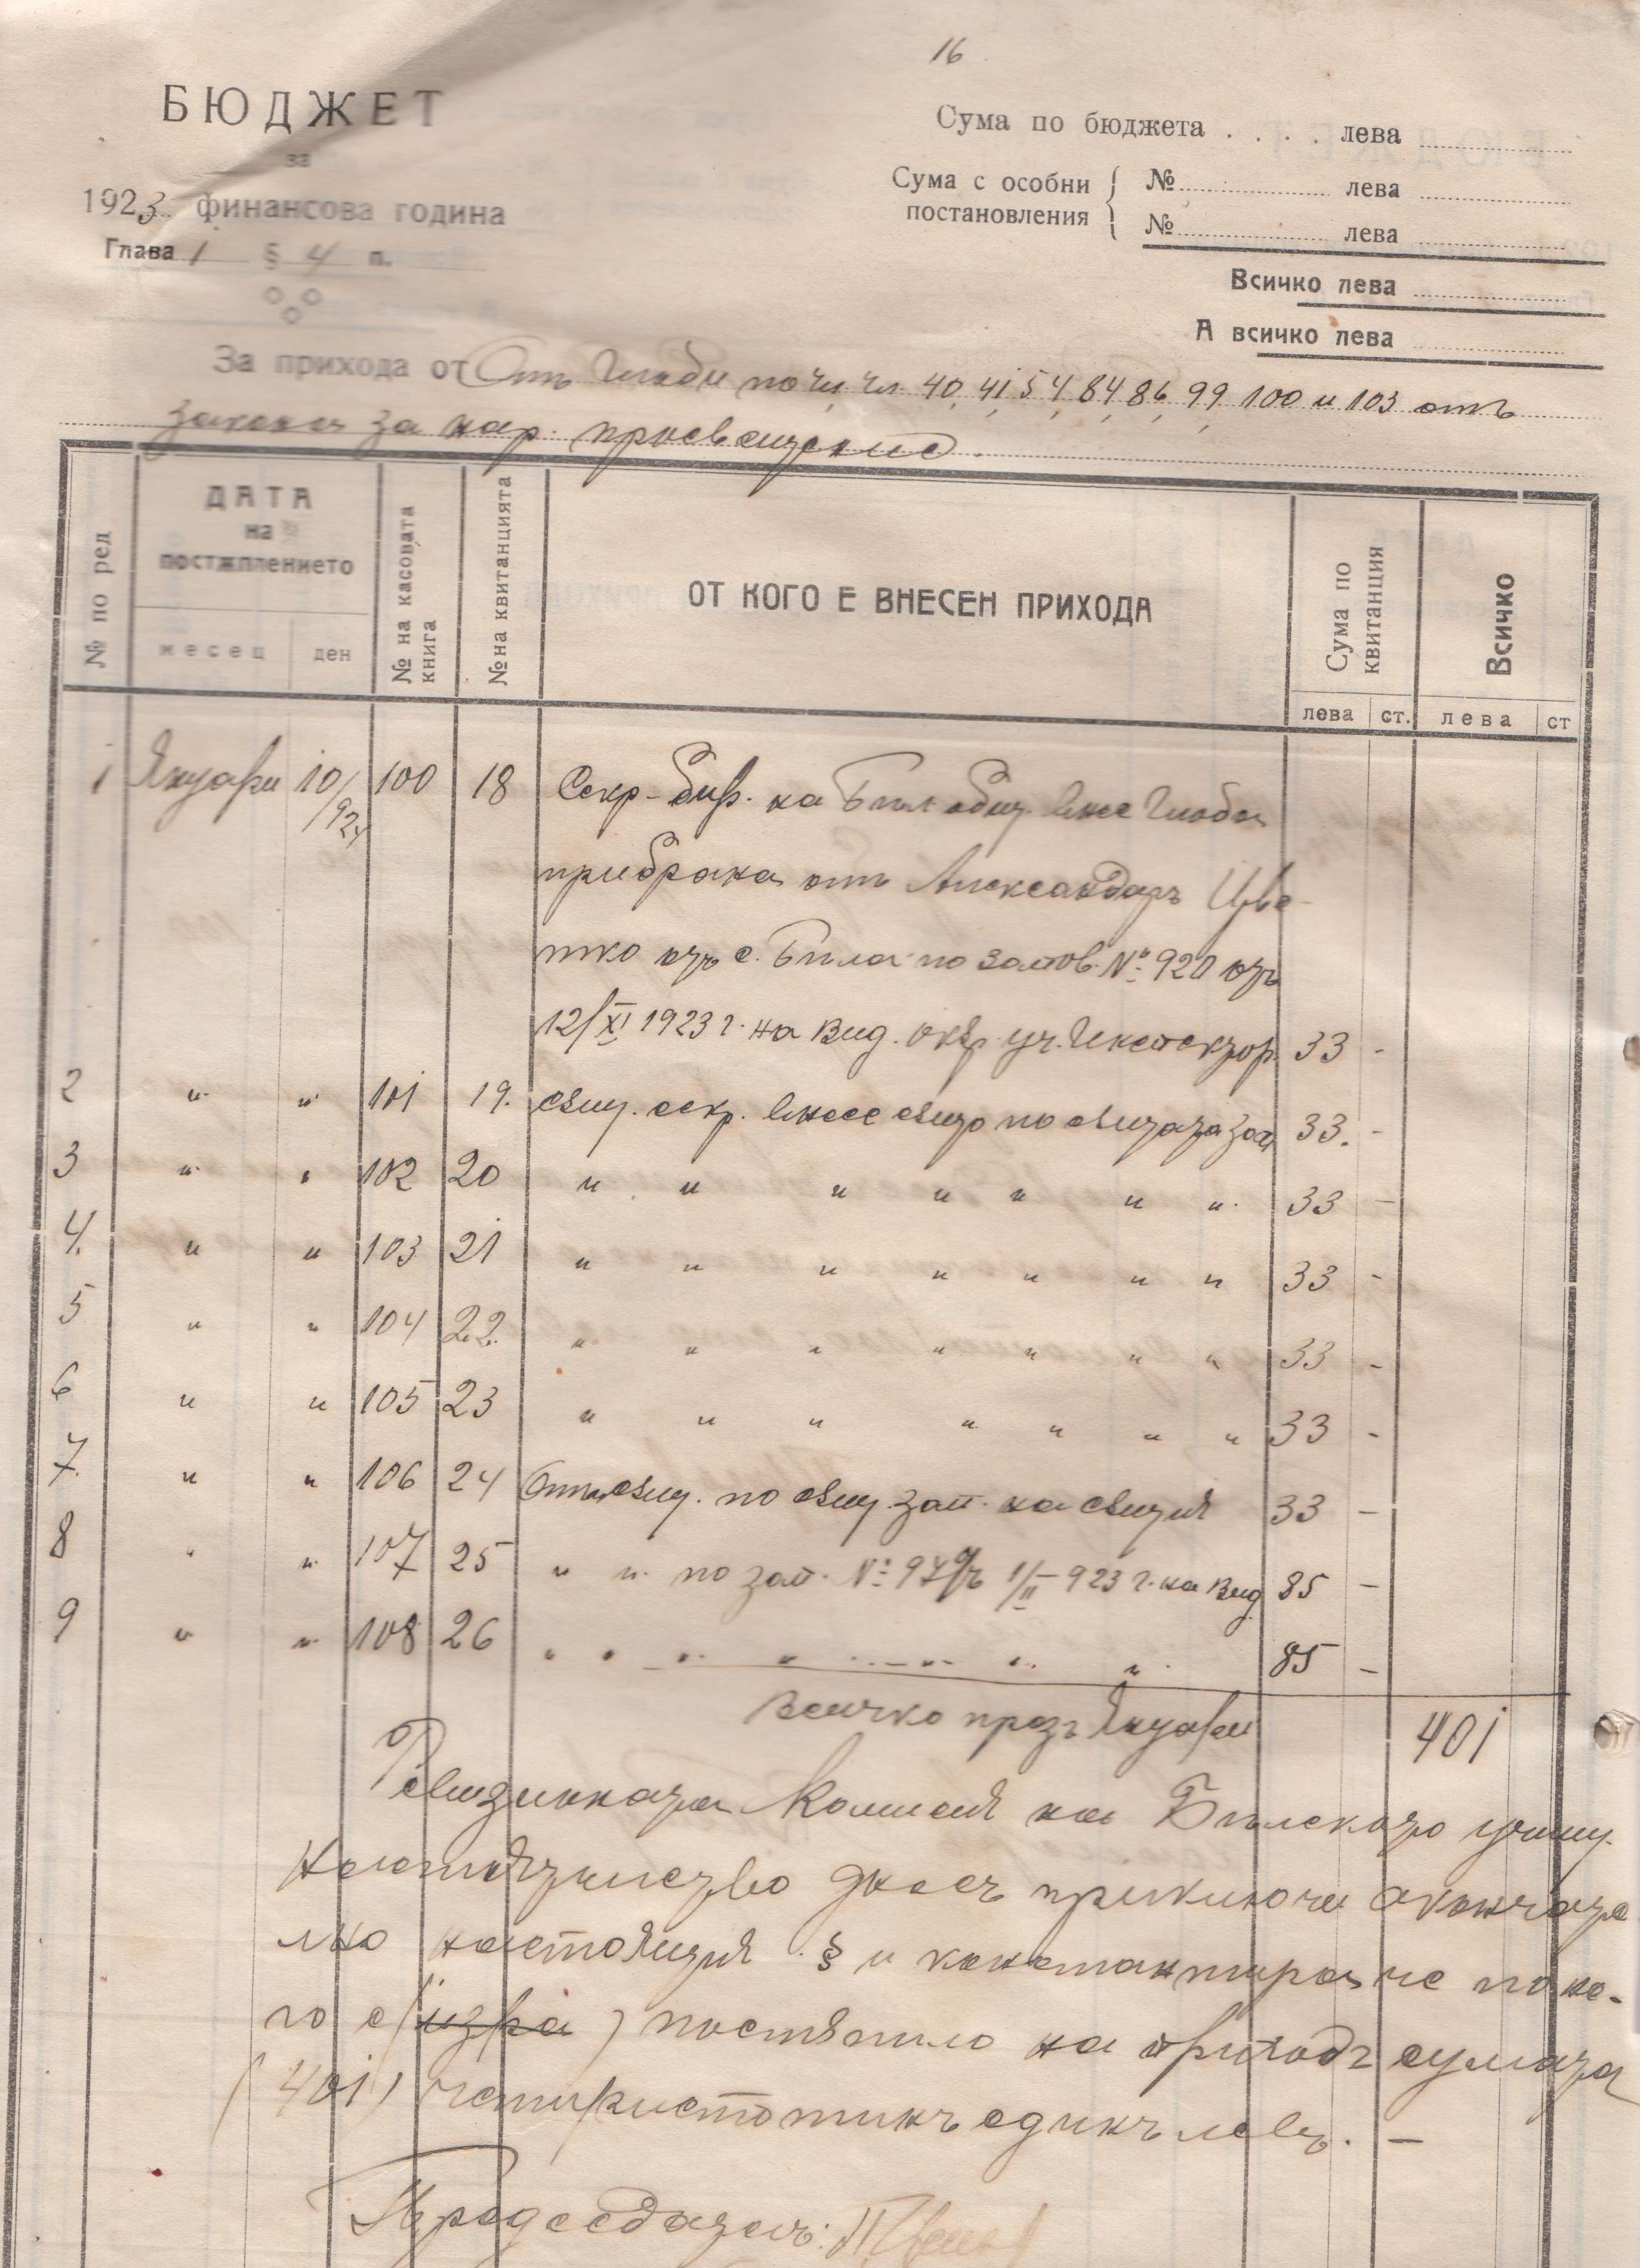 16
БЮДЖЕТ
за
1923 финансова година
Глава 1 § 4 п.
Сума по бюджета . . . . лева
Сума с особни постановления { № лева
№ лева
Всичко лева
А всичко лева
За прихода от Отъ Глоби по чл. чл. 40, 41, 54, 84, 86, 99, 100 и 103 отъ
закона за нар. просвещение.
№ по ред
ДАТА на постѫплението
месец
ден
№ на касовата книга
№ на квитанцията
ОТ КОГО Е ВНЕСЕН ПРИХОДА
Сума по квитанция
Всичко
лева ст. лева ст
1 Януари 10/924 100 18 Секр-бир. на Бѣл. общ. внесе глоба
прибрана отъ Александъръ Цве-
тко отъ с. Бѣла по запов. № 920 отъ
12/XI 1923 г. на Вид. окр. уч. Инспектор. 33 -
2 " " 101 19. сѫщ. секр. внесе сѫщо по сѫщата зап. 33. -
3 " " 102 20 " " " " " " " 33 -
4. " " 103 21 " " " " " " " 33 -
5 " " 104 22. " " " " " " " 33 -
6 " " 105 23 " " " " " " " 33 -
7. " " 106 24 Отъ сѫщ. по сѫщ. зап. на сѫщия 33 -
8 " " 107 25 " " по зап. № отъ 1/II 923 г. на Вид. 85 -
9 " " 108 26 " " " " " " " " 85 -
Всичко презъ Януари 401
Ревизионната Комисия на Бѣлското учил.
настоятелство днесъ приключи окончате
лно настоящия § и константира, че по не-
го е постѫпило на приходъ сумата
(401) четиристотинъ единъ лева. —
Председателъ: